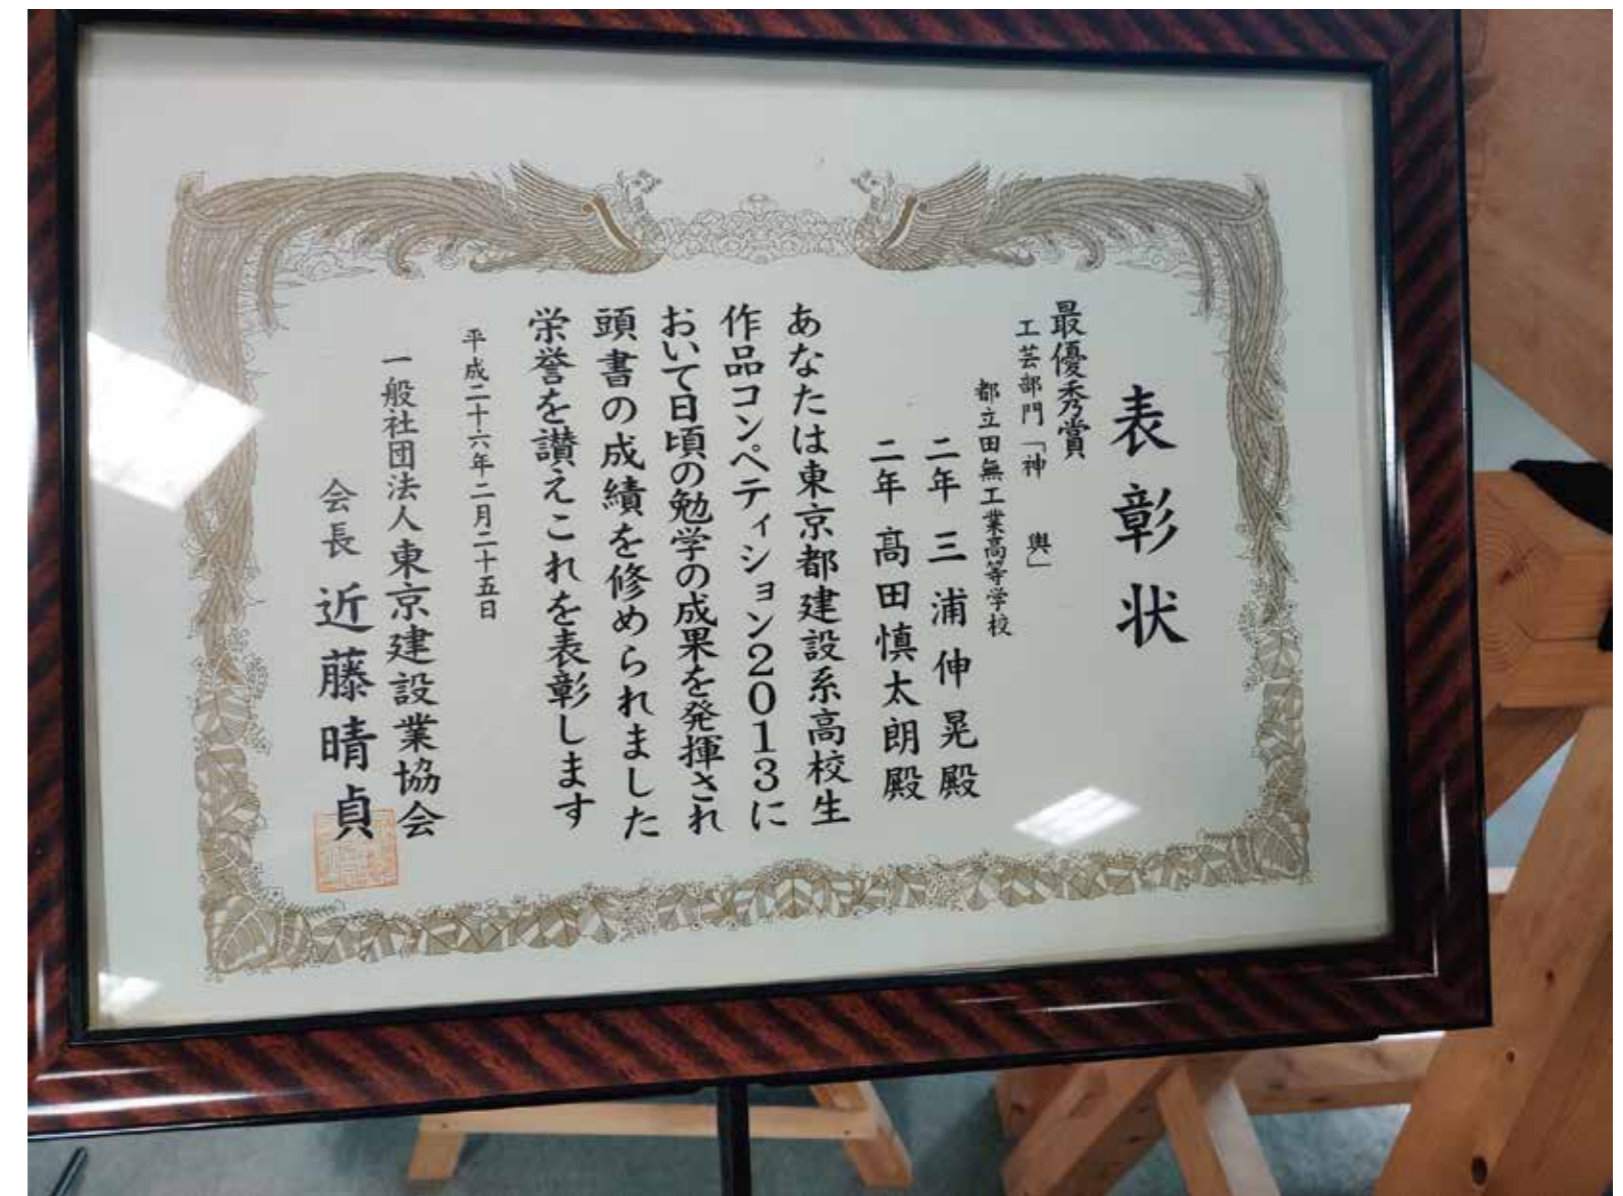 表彰状
最優秀賞
工芸部門「神輿」
都立田無工業高等学校
二年 三浦伸晃殿
二年 髙田慎太朗殿
あなたは東京都建設系高校生
作品コンペティション2013に
おいて日頃の勉学の成果を発揮され
頭書の成績を修められました
栄誉を讃えこれを表彰します
平成二十六年二月二十五日
一般社団法人東京建設業協会
会長 近藤晴貞